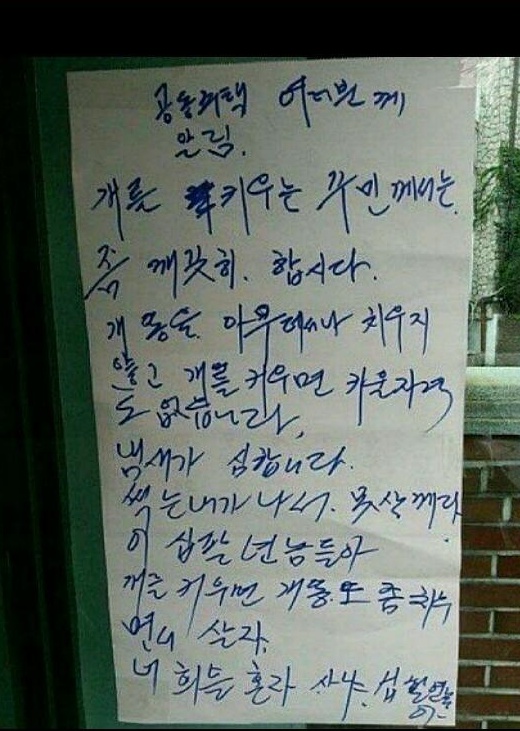 공동주택 여러분 께
알림.
개를 키우는 주민께서는.
좀 깨끗히. 합시다.
개 똥을 아무데서나 치우지
않고 개를 키우면 키울자격
도 없습니다,
냄새가 심합니다.
썩는내가 나서. 못살께다
이 십팔 년놈들아
개를 키우면 개똥도 좀 치우
면서 살자.
너희들 혼자 사냐. 십팔년놈
아